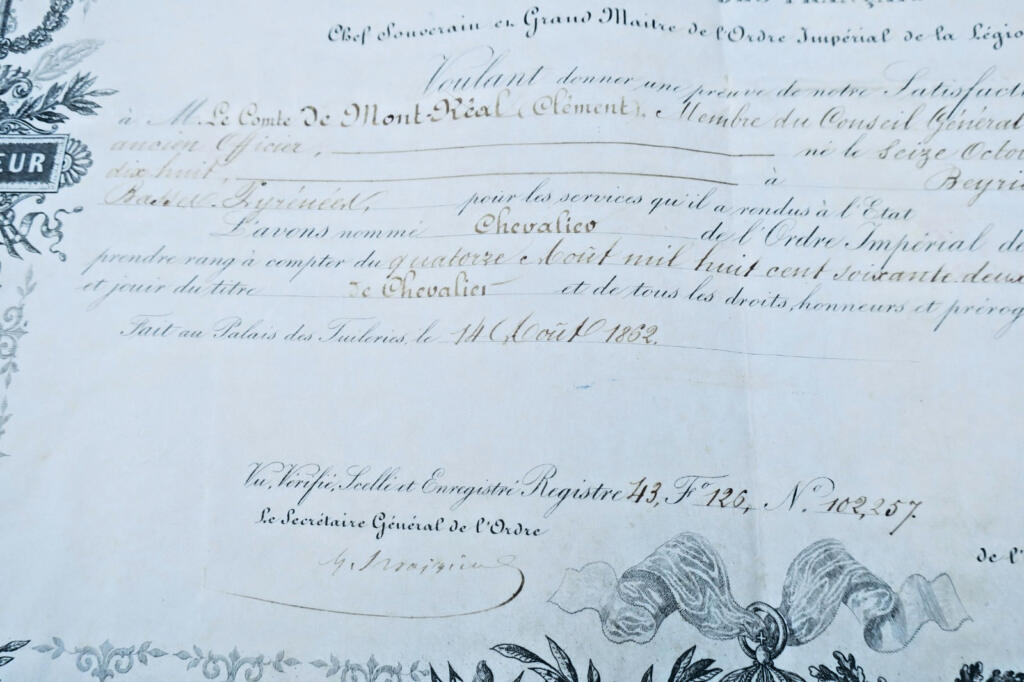 Chef Souverain et Grand Maitre de l'Ordre Impérial de la Légio
Voulant donner une preuve de notre Satisfact
à M. Le Comte De Mont-Réal (Clément). Membre du Conseil Général
EUR
ancien Officier, né le Seize Octo
dix huit, à Beyri
Basses Pyrénées, pour les services qu'il a rendus à l'Etat
L'avons nommé Chevalier de l'Ordre Impérial de
prendre rang à compter du quatorze Août mil huit cent soixante deux
et jouir du titre de Chevalier et de tous les droits, honneurs et prérog
Fait au Palais des Tuileries, le 14 Août 1862.
Vu, Vérifié, Scellé et Enregistré Registre 43, Fo 126, No 102,257.
Le Secrétaire Général de l'Ordre
de l'